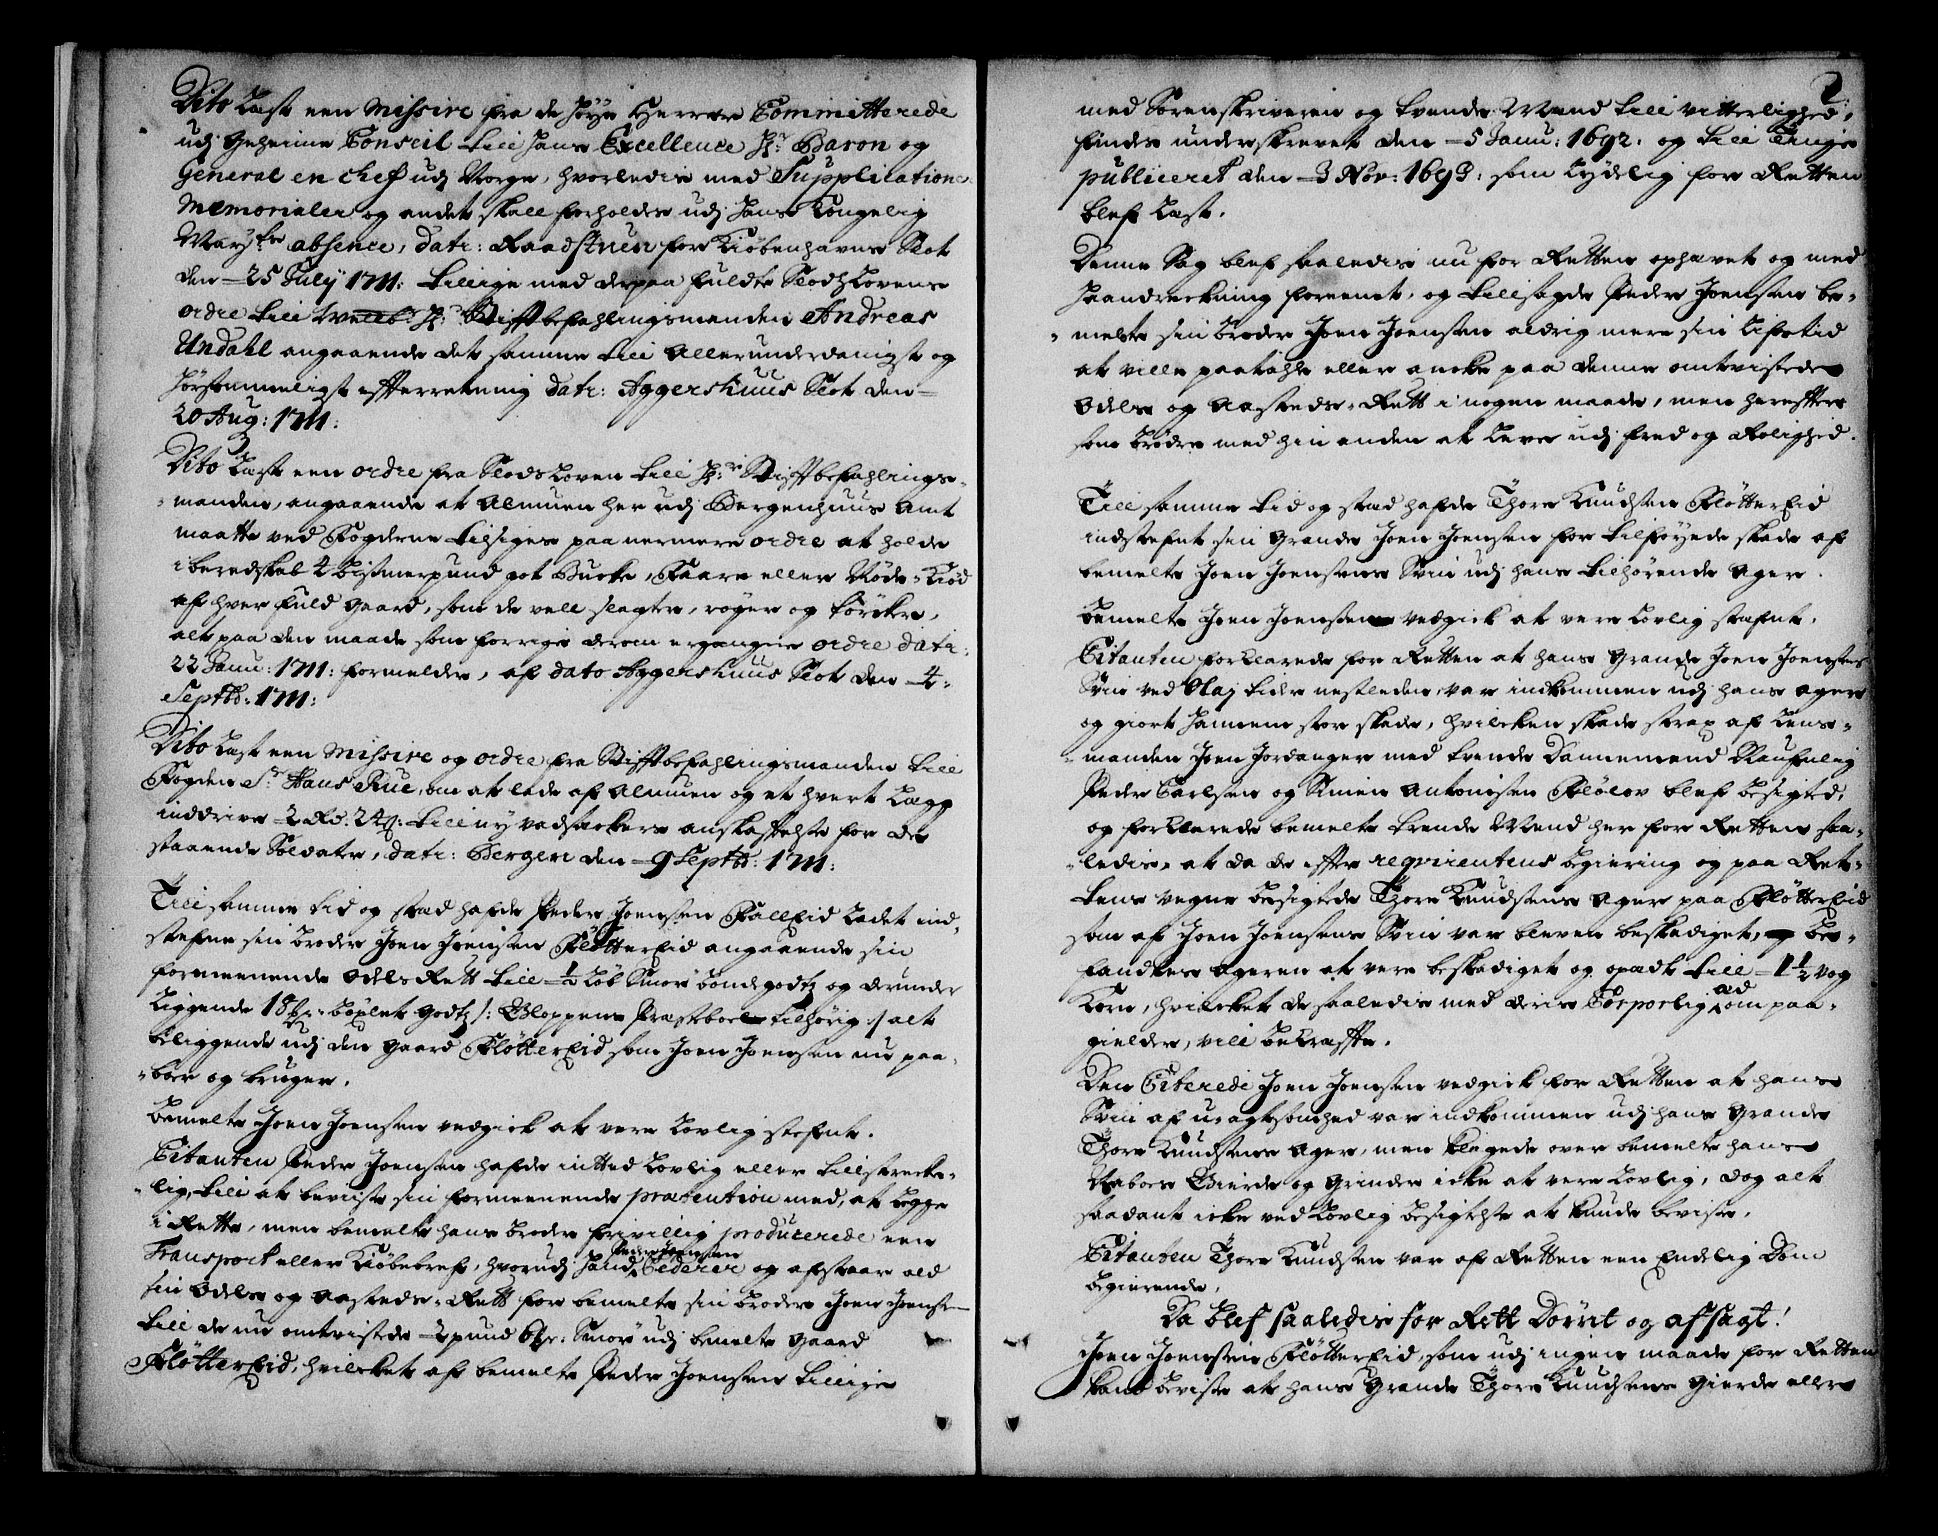 Dito Læst een Missive fra de høye Herrer Committerede
udj Geheime Conseil till hans Excellence Hr: Baron og
General en Chef udj Norge, hvorledis med Supplication
Memorialer og andet skall forholdes udj hans Kongelig
Mayts absence, dat: Raadstuen for Kiøbenhavns Slot
den 25 July 1711: tillige med derpaa fuldte Slodzlovens
ordre till Hr: Stiftbefahlingsmanden Andreas
Undahl angaaende det samme till allerunderdanigst og
hørsommeligst efterretning dat: Aggershuus Slot den
20 Aug: 1711:
Dito Læst een ordre fra Slodsloven till Hr: Stiftbefahlings-
manden, angaaende at almuen her udj Bergenhuus amt
maatte ved Fogderne tilsiges paa nermere ordre at holde
i beredskab 4 bismerpund got Bucke, Faare eller Nøde-Kiød
af hver fuld gaard, som de vell slagter, røger og tørcker,
alt paa den maade som forrige derom ergangne ordre dat:
22 Janu: 1711: formelder, af dato Aggershuus Slot den 4
Septb: 1711:
Dito Læst een Missive og ordre fra Stiftbefahlingsmanden till
Fogden Sr Hans Rue, om at lade af almuen og et hvert Lægg
inddrive 2 Rd. 24 s: till ny vadseckers anskaffelse for de
staaende Soldater, dat: Bergen den 9 Septb: 1711:
Till samme tid og stæd hafde Peder Joensen FállEid ladet ind-
stefne sin broder Joen Joensen FløtterEid angaaende sin
formeenende Odels Rett till ½ Løb Smør bøndegodtz og derunder
Liggende 18 mr: bøxlet godtz /: Gloppens Præsteboel tilhørig :/ alt
beliggende udj den gaard FløtterEid som Joen Joensen nu paa-
boer og bruger.
Bemelte Joen Joensen vedgick at vere Lovlig stefnt.
Citanten Peder Joensen hafde intted Lovlig eller tillstrecke-
lig, till at beviise sin formeenende prætention med, at legge
i Rette, men bemelte hans broder frivillig producerede een
Transport eller Kiøbebref, hvorudj hand Peder Joensen Cederer og afstaar ald
sin Odels og aasteds-Rett for bemelte sin broder Joen Joensen
till de nu omtvistede 2 pund 6 mr: Smør udj bemelte gaard
FløtterEid, hvilcket af bemelte Peder Joensen tillige
2.
med Sorenskriveren og tvende Mænd till vitterlighed,
findes underskrevet den 5 Janu: 1692: og till Tinge
publiceret den 3 Nov: 1693: som tydelig for Retten
blef Læst.
Denne Sag blef saaledis nu for Retten ophævet og med
haandreckning foreenet, og tillsagde Peder Joensen be-
melte sin broder Joen Joensen aldrig mere sin Lifstid
at ville paatahle eller ancke paa denne omtvistede
Odels og aasteds-Rett i nogen maade, men herefter
som brødre med hin anden at leve udj fred og Rolighed.
Till samme tid og stæd hafde Thore Knudsen FløtterEid
indstefnt sin grande Joen Joensen for tilføyede skade af
bemelte Joen Joensens Sviin udj hans tilhørende ager.
Bemelte Joen Joensen vedgick at vere Lovlig stefnt.
Citanten forklarede for Retten at hans grande Joen Joensens
Sviin ved Olaj tider nestleden, var indkommen udj hans ager
og giort hannem stor skade, hvilcken skade strax af Lens-
manden Joen Jordanger med tvende Dannemænd Naufnlig
Peder Carlsen og Simen Antonisen Fløløv blef besigted,
og forklarede bemelte tvende Mænd her for Retten saa-
ledis, at da de efter reqvirentens begiering og paa Ret-
tens vegne besigtede Thore Knudsens ager paa FløtterEid
som af Joen Joensens Sviin var bleven beskadiget, be-
fandtes ageren at vere beskadiget og opædt till 1½ vog
Korn, hvilcket de saaledis med deris Corporlig æd om paa-
gielder, vill bekræfte.
Den Citerede Joen Joensen vedgick for Retten at hans
Sviin af uagtsomhed var indkommen udj hans grande
Thore Knudsens ager, men klagede over bemelte hans
Naboes gierde og grinder icke at vere Lovlig, dog alt
saadant icke ved Lovlig besigtelse at kunde beviise.
Citanten Thore Knudsen var af Retten een Endelig Dom
begierende,
Da blef saaledis for Rett Dømt og afsagt!
Joen Joensen FløtterEid, som udj ingen maade for Retten
kand beviise at hans grande Thore Knudsens gierde eller